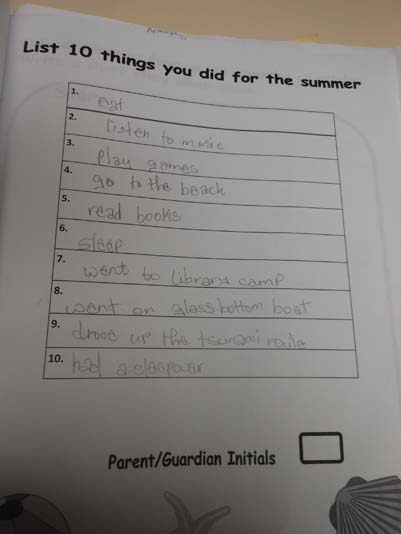 List 10 things you did for the summer
1. eat
2. listen to music
3. play games
4. go to the beach
5. read books
6. sleep
7. went to library camp
8. went on glassbottom boat
9. drove up the tsunami
10. had a sleepover
Parent/Guardian Initials